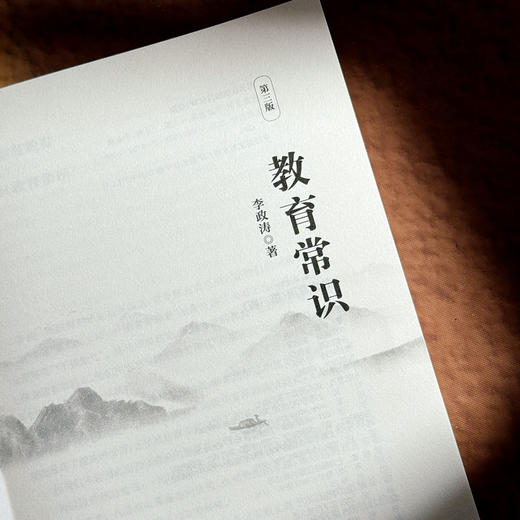 第三版
教育常识
李政涛◎著